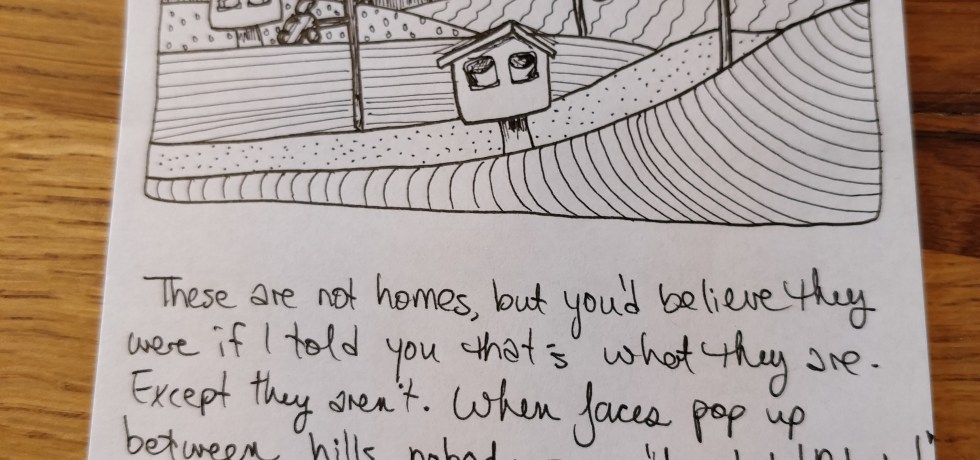 These are not homes, but you'd believe they
were if I told you that's what they are.
Except they aren't. When faces pop up
between hills